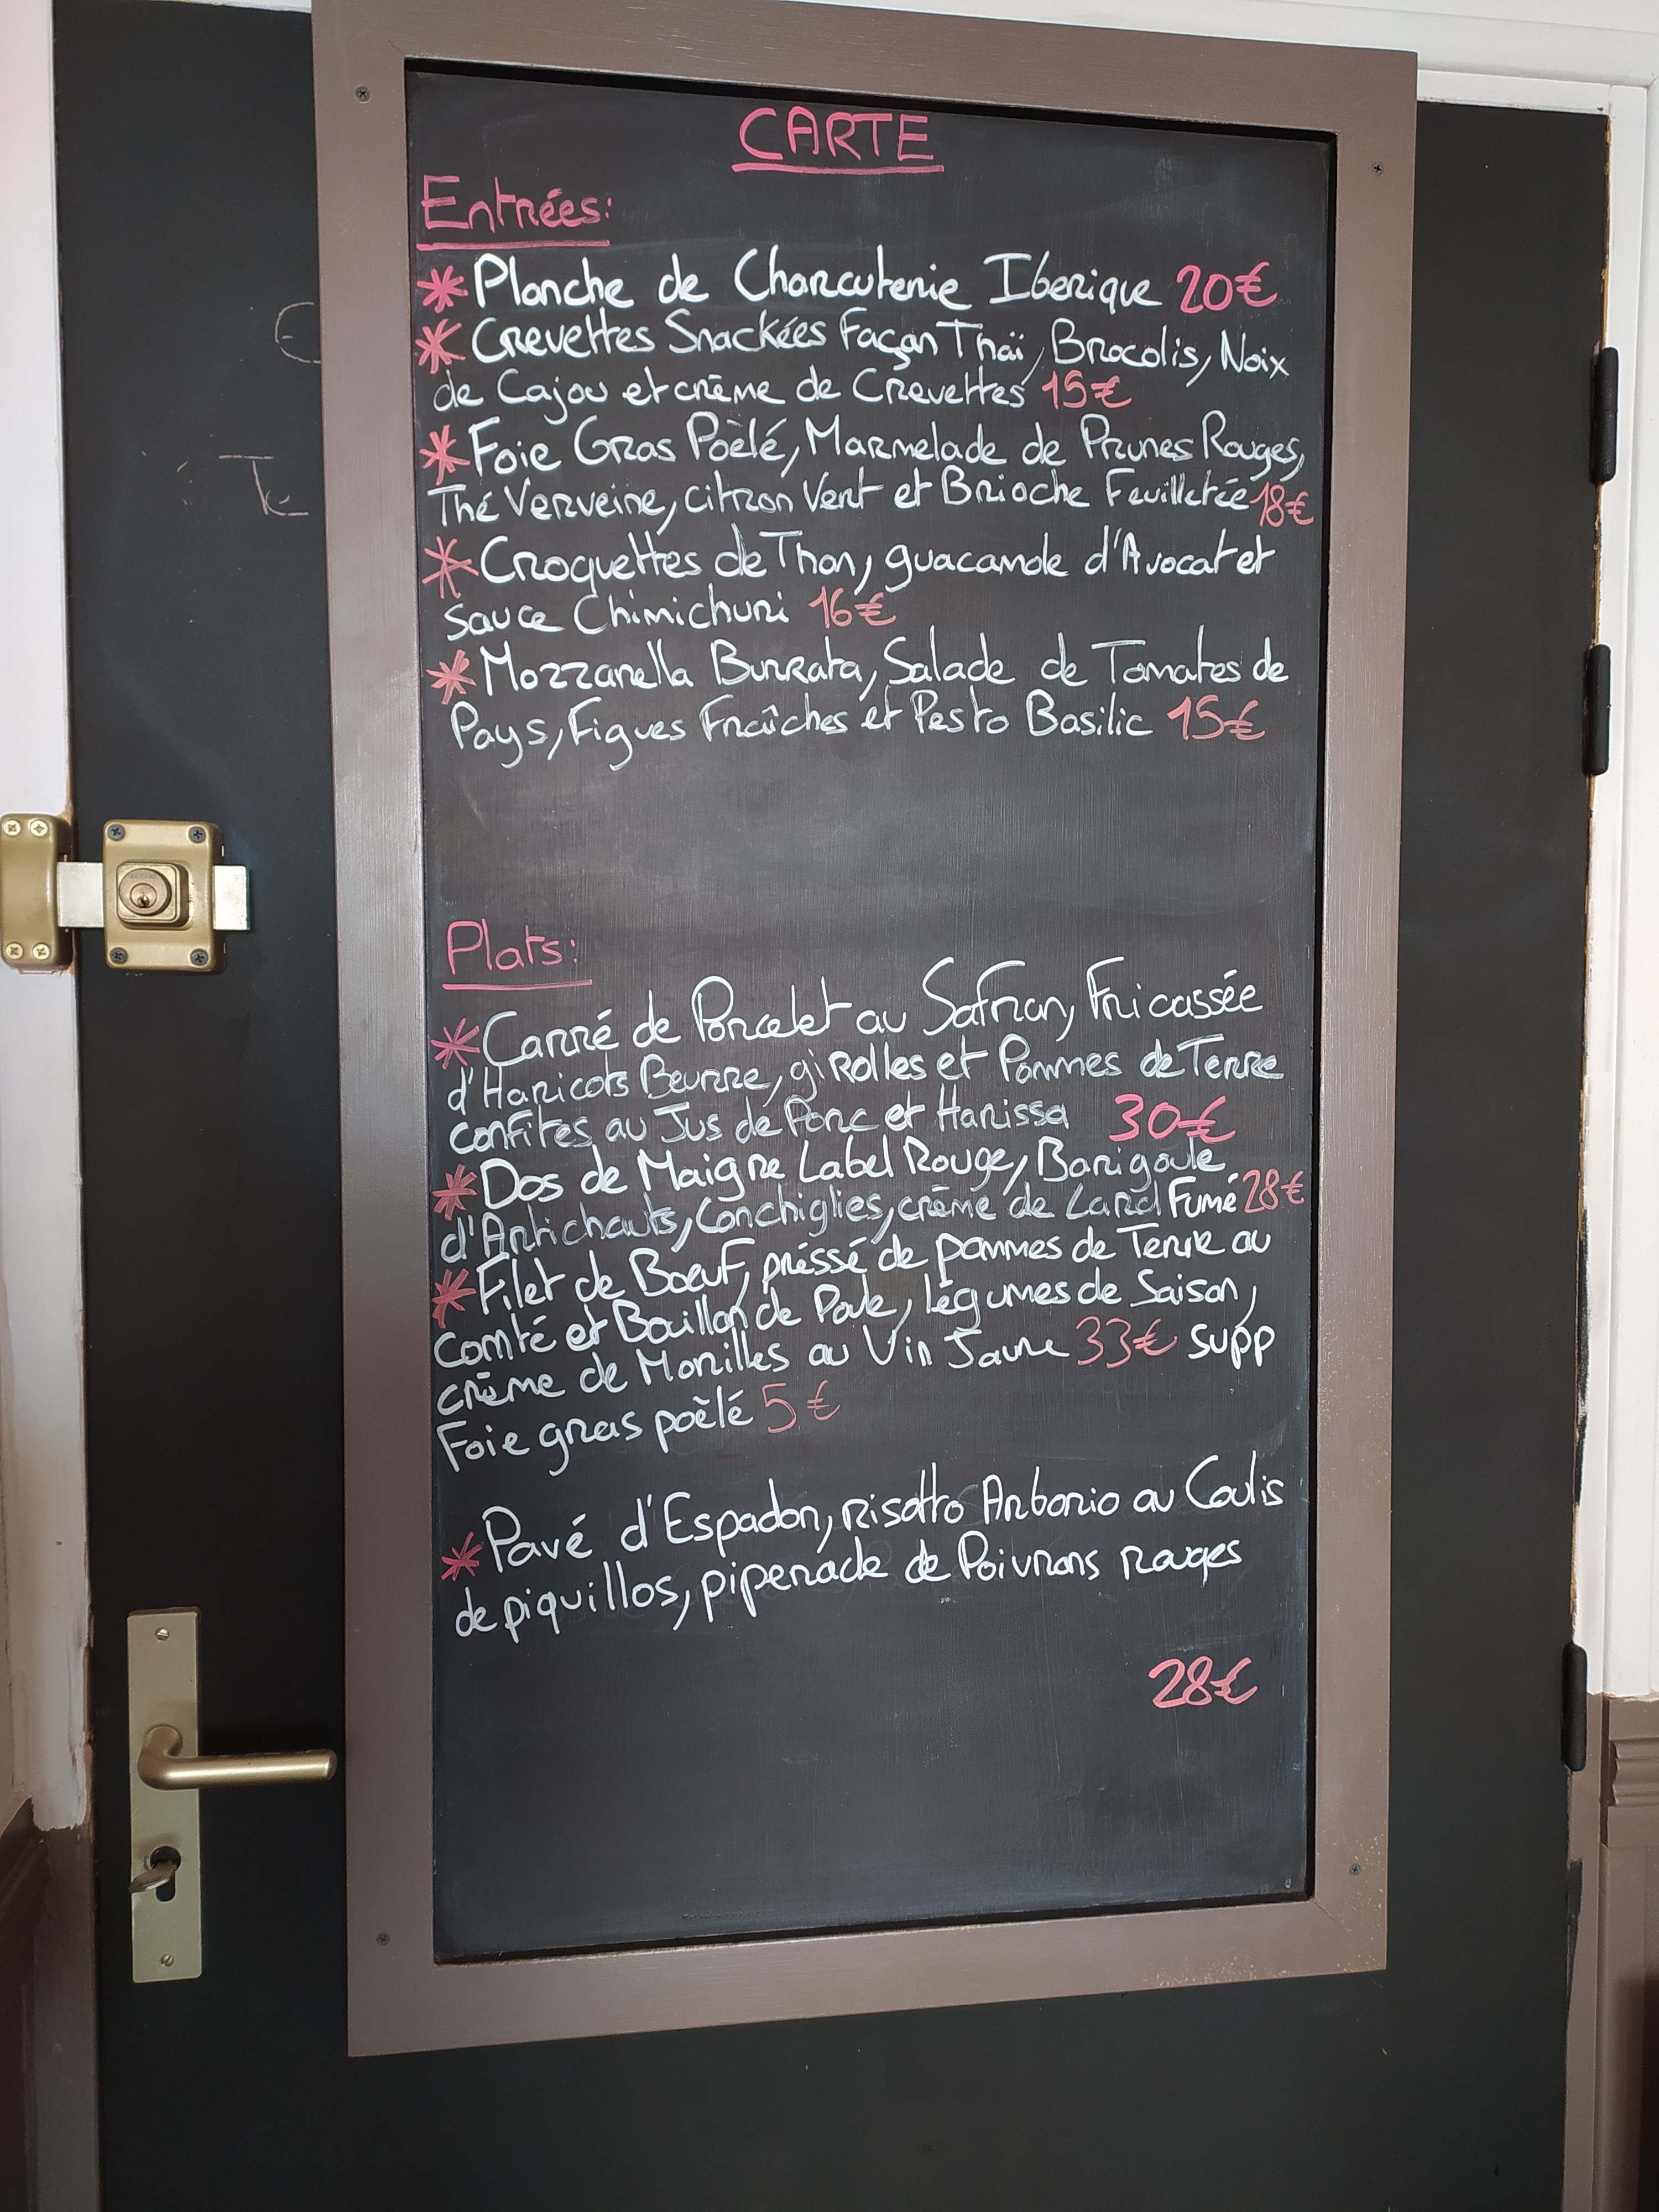 CARTE
Entrées:
* Planche de Charcuterie Iberique 20€
* Crevettes Snackées Façon Thaï, Brocolis, Noix
de Cajou et crème de Crevettes 15€
* Foie Gras Poèlé, Marmelade de Prunes Rouges,
Thé Verveine, citron Vert et Brioche Feuilletée 18€
* Croquettes de Thon, guacamole d'Avocat et
sauce Chimichuri 16€
* Mozzarella Burrata, Salade de Tomates de
Pays, Figues Fraîches et Pesto Basilic 15€
Plats:
* Carré de Porcelet au Safran, Fricassée
d'Haricots Beurre, girolles et Pommes de Terre
confites au Jus de Porc et Harissa 30€
* Dos de Maigre Label Rouge, Barigoule
d'Artichauts, Conchiglies, crème de Lard Fumé 28€
* Filet de Boeuf, préssé de pommes de Terre au
Comté et Bouillon de Poule, légumes de Saison,
crème de Morilles au Vin Jaune 33€ supp
Foie gras poèlé 5€
* Pavé d'Espadon, risotto Arborio au Coulis
de piquillos, piperade de Poivrons rouges
28€